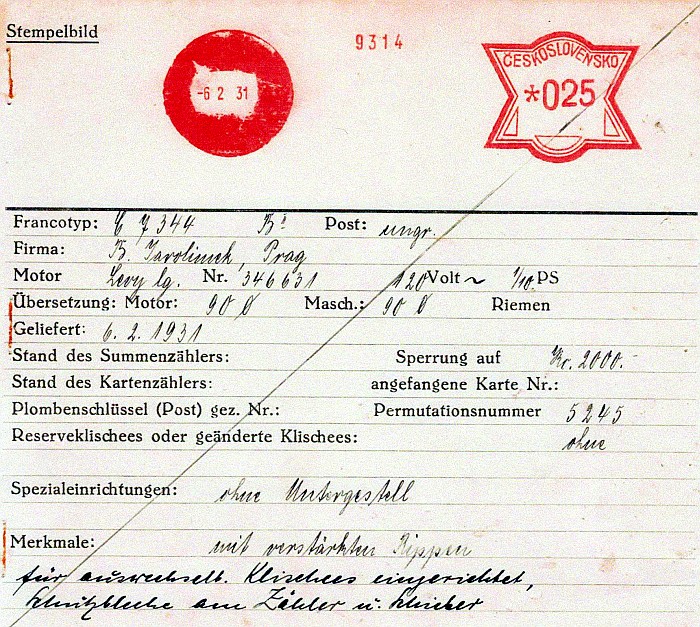 Stempelbild
9314
-6 2 31
ČESKOSLOVENSKO
*025
Francotyp: C 7344 Post: ungr.
Firma: Prag
Motor Levy lg. Nr. 346631 120 Volt ~ 1/10 PS
Übersetzung: Motor: 90 Ø Masch.: 90 Ø Riemen
Geliefert: 6. 2. 1931
Stand des Summenzählers: Sperrung auf Kr. 2000.-
Stand des Kartenzählers: angefangene Karte Nr.:
Plombenschlüssel (Post) gez. Nr.: Permutationsnummer 5245
Reserveklischees oder geänderte Klischees: ohne
Spezialeinrichtungen: ohne Untergestell
Merkmale: mit verstärkten Rippen
für auswechselb. Klischees eingerichtet,
Schutzbleche am Zähler u. Schieber